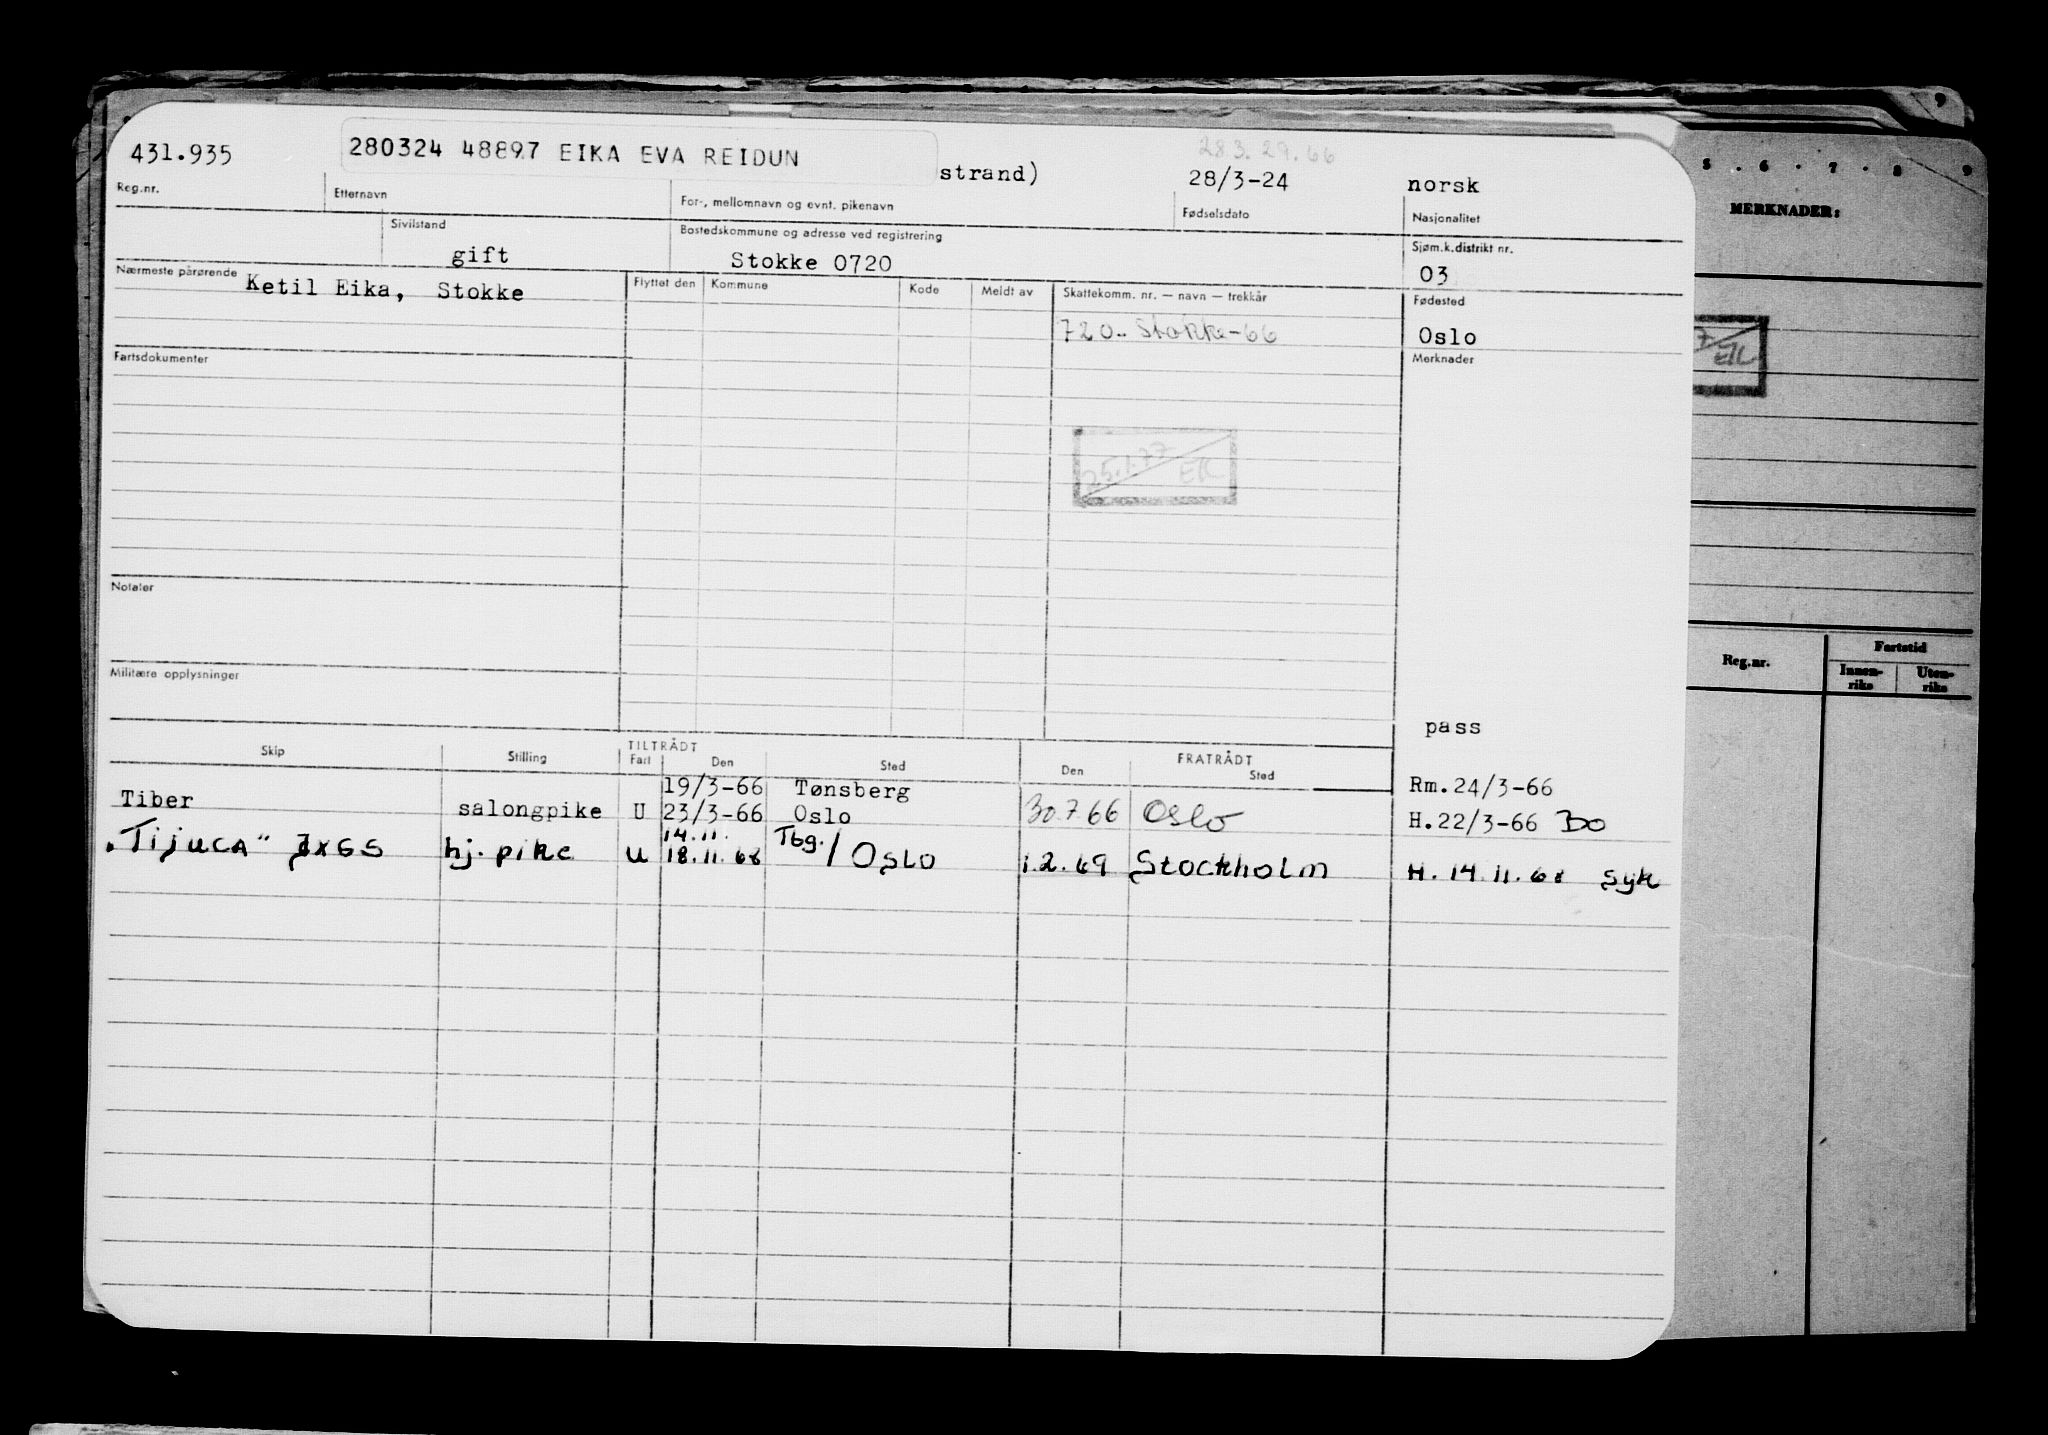 431.935 280324 48897 EIKA EVA REIDUN strand) 28.3.29.66 28/3-24 norsk
Reg.nr. Etternavn For-, mellomnavn og evnt. pikenavn Fødselsdato Nasjonalitet
Sivilstand Bostedskommune og adresse ved registrering Sjøm.k.distrikt nr.
gift Stokke 0720 03
Nærmeste pårørende Ketil Eika, Stokke Flyttet den Kommune Kode Meldt av Skattekomm. nr. — navn — trekkår Fødested
720.. Stokke-66 Oslo
Fartsdokumenter Merknader
25.1.77 EK
Notater
Militære opplysninger
pass
Skip Stilling TILTRÅDT FRATRÅDT
Fart Den Sted Den Sted
19/3-66 Tønsberg Rm.24/3-66
Tiber salongpike U 23/3-66 Oslo 30.7.66 Oslo H.22/3-66 BO
14.11. Tbg./
"TIJUCA" JXGS hj. pike U 18.11.68 Oslo 1.2.69 Stockholm H. 14.11.68 Syk
5 . 6 . 7 . 8 9
MERKNADER:
7 EK
Reg.nr. Fartstid
Innen-
rike Uten-
riks